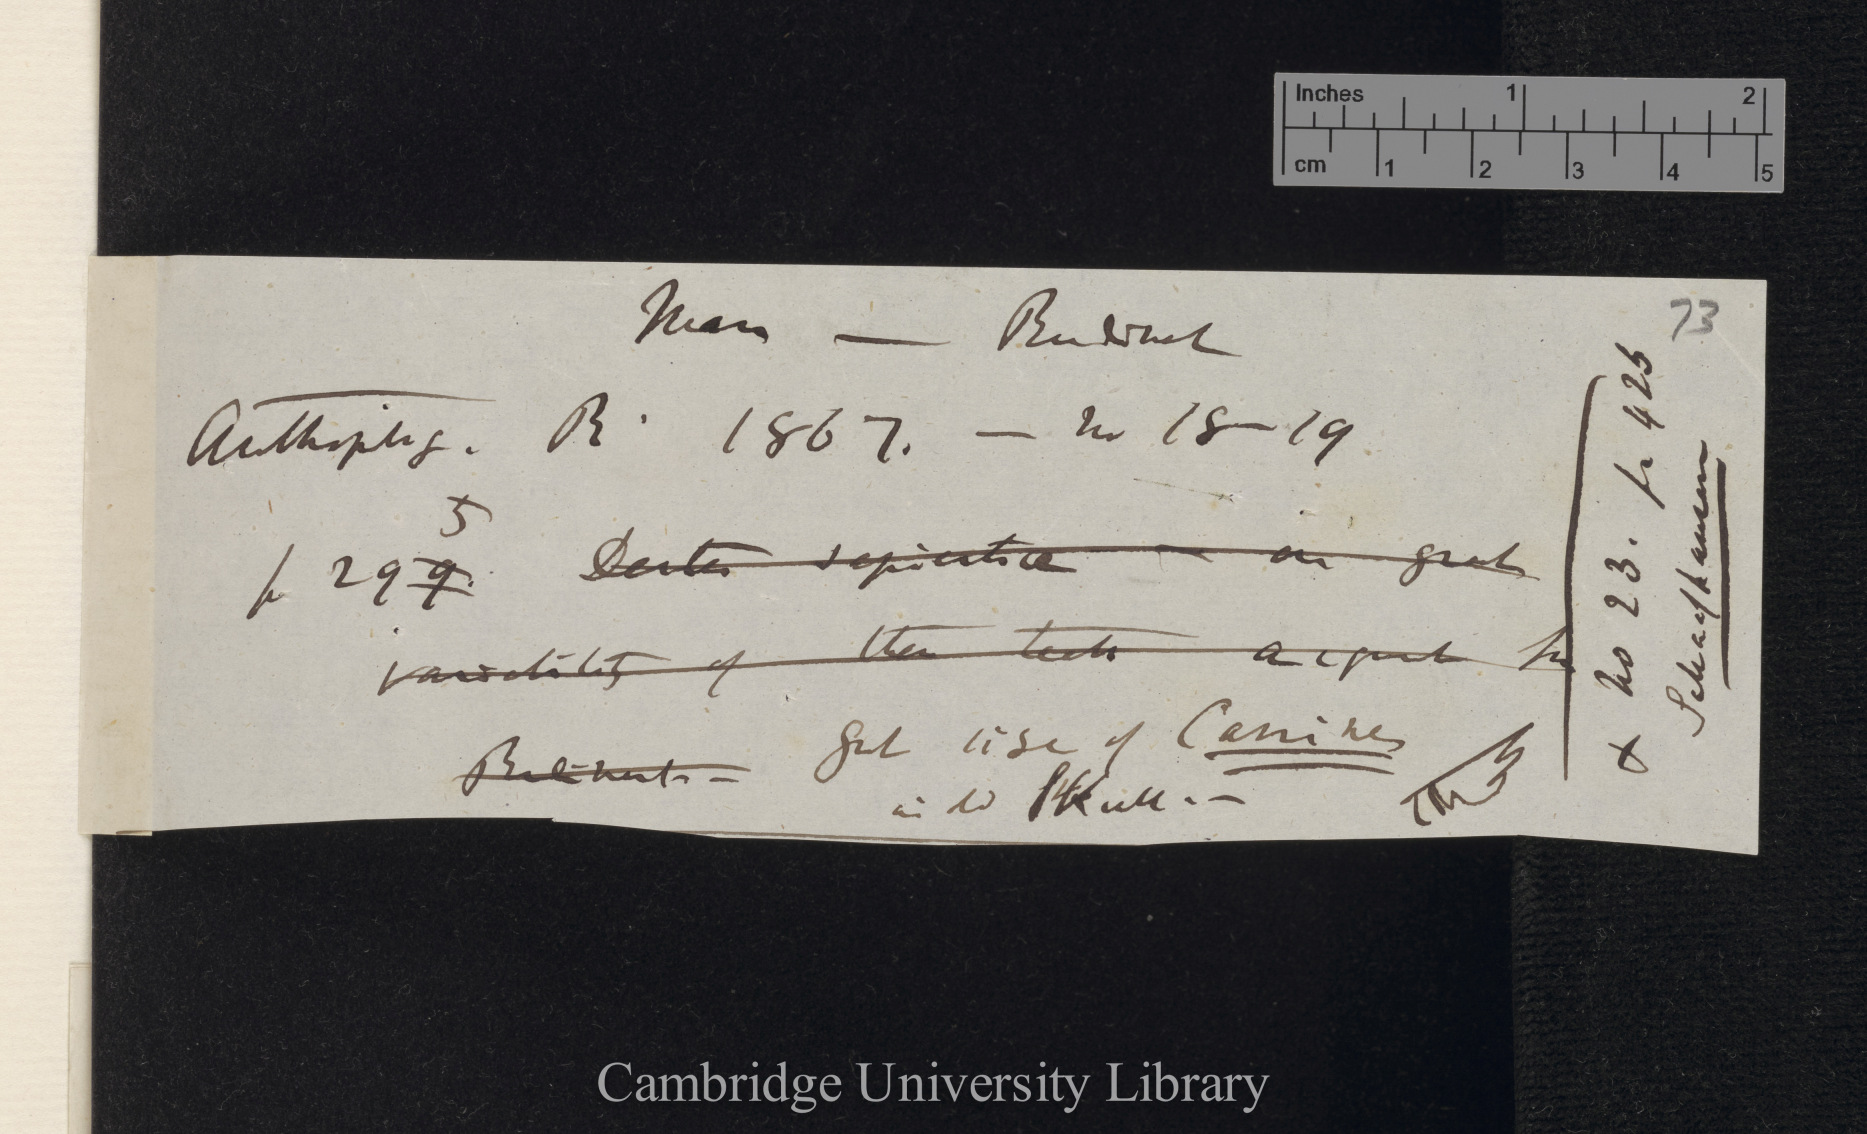 Inches 1 2
cm 1 2 3 4 5
73
Man — Rudiment
Anthroplog. R. 1867. — no 18–19
p 299. 5
Dentes sapientiæ — on great
variability of these teeth as good for
Rudiments —
great size of Canines
in do Skull. —
& no 23. p. 426
Schaafhausen
Cambridge University Library